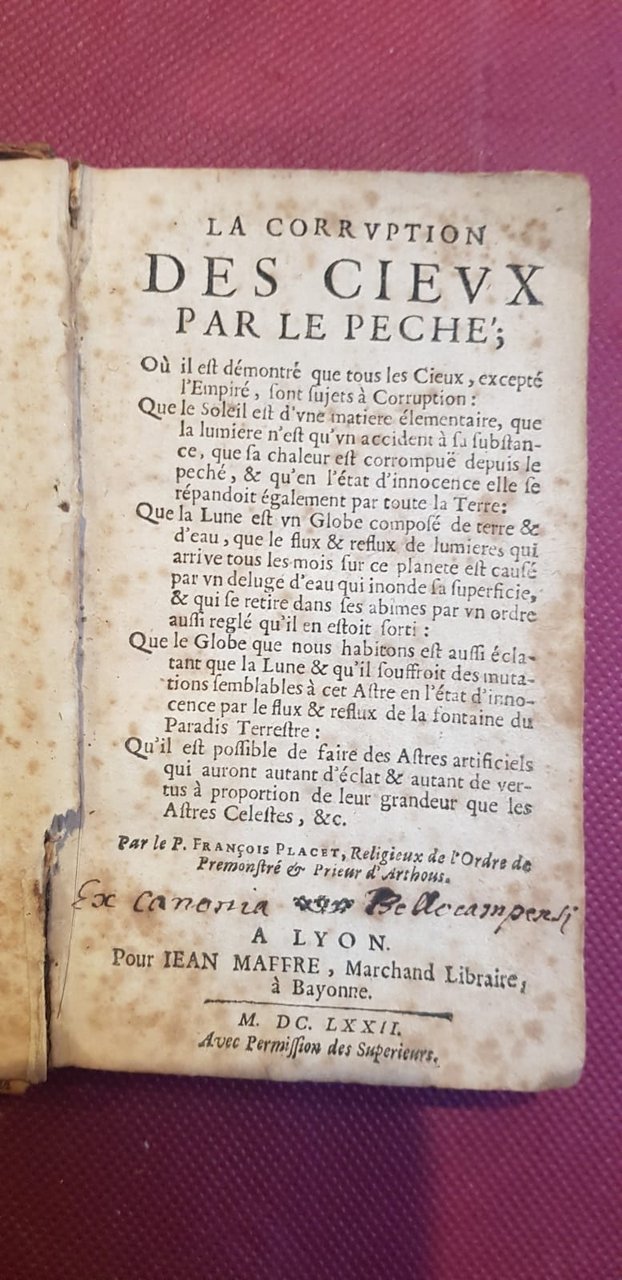 LA CORRVPTION
DES CIEVX
PAR LE PECHE';
Où il eſt démontré que tous les Cieux, excepté
l'Empiré, ſont ſujets à Corruption :
Que le Soleil eſt d'vne matiere élementaire, que
la lumiere n'eſt qu'vn accident à ſa ſubſtan-
ce, que ſa chaleur eſt corrompuë depuis le
peché, & qu'en l'état d'innocence elle ſe
répandoit également par toute la Terre:
Que la Lune eſt vn Globe compoſé de terre &
d'eau, que le flux & reflux de lumieres qui
arrive tous les mois ſur ce planete eſt cauſé
par vn deluge d'eau qui inonde ſa ſuperficie,
& qui ſe retire dans ſes abîmes par vn ordre
auſſi reglé qu'il en eſtoit ſorti :
Que le Globe que nous habitons eſt auſſi écla-
tant que la Lune & qu'il ſouffroit des muta-
tions ſemblables à cet Aſtre en l'état d'inno-
cence par le flux & reflux de la fontaine du
Paradis Terreſtre :
Qu'il eſt poſſible de faire des Aſtres artificiels
qui auront autant d'éclat & autant de ver-
tus à proportion de leur grandeur que les
Aſtres Celeſtes, &c.
Par le P. FRANÇOIS PLACET, Religieux de l'Ordre de
Premonſtré & Prieur d'Arthous.
Ex canonia Bellocampensi
A LYON.
Pour IEAN MAFFRE, Marchand Libraire,
à Bayonne.
M. DC. LXXII.
Avec Permiſſion des Superieurs.